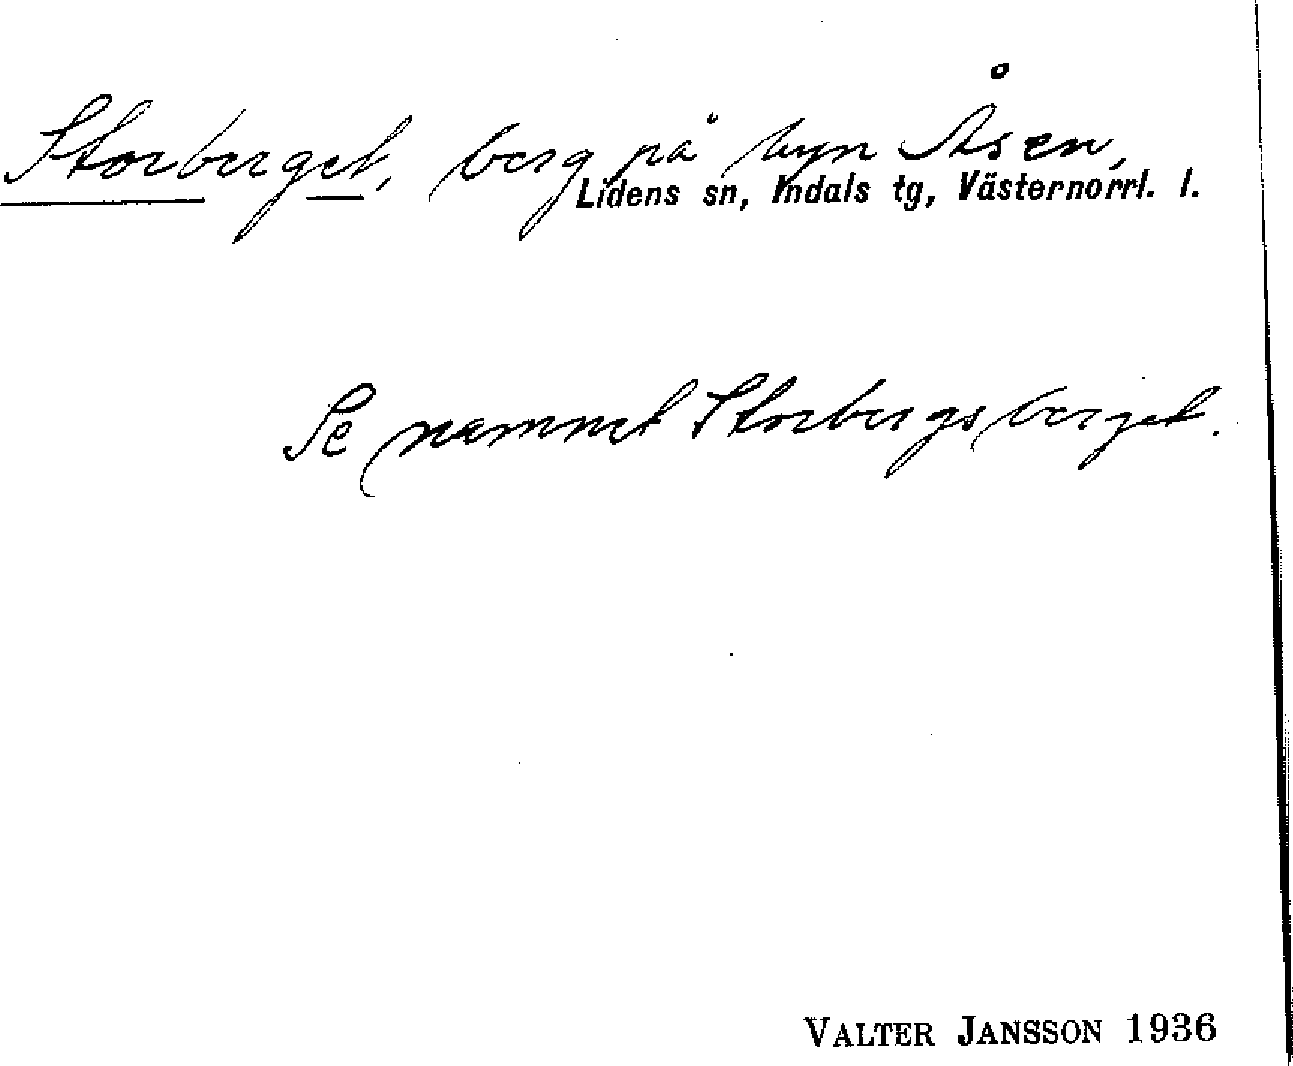 Storberget, berg på byn Åsen,
Lidens sn, Indals tg, Västernorrl. l.
Se namnet Storbergsberget.
VALTER JANSSON 1936